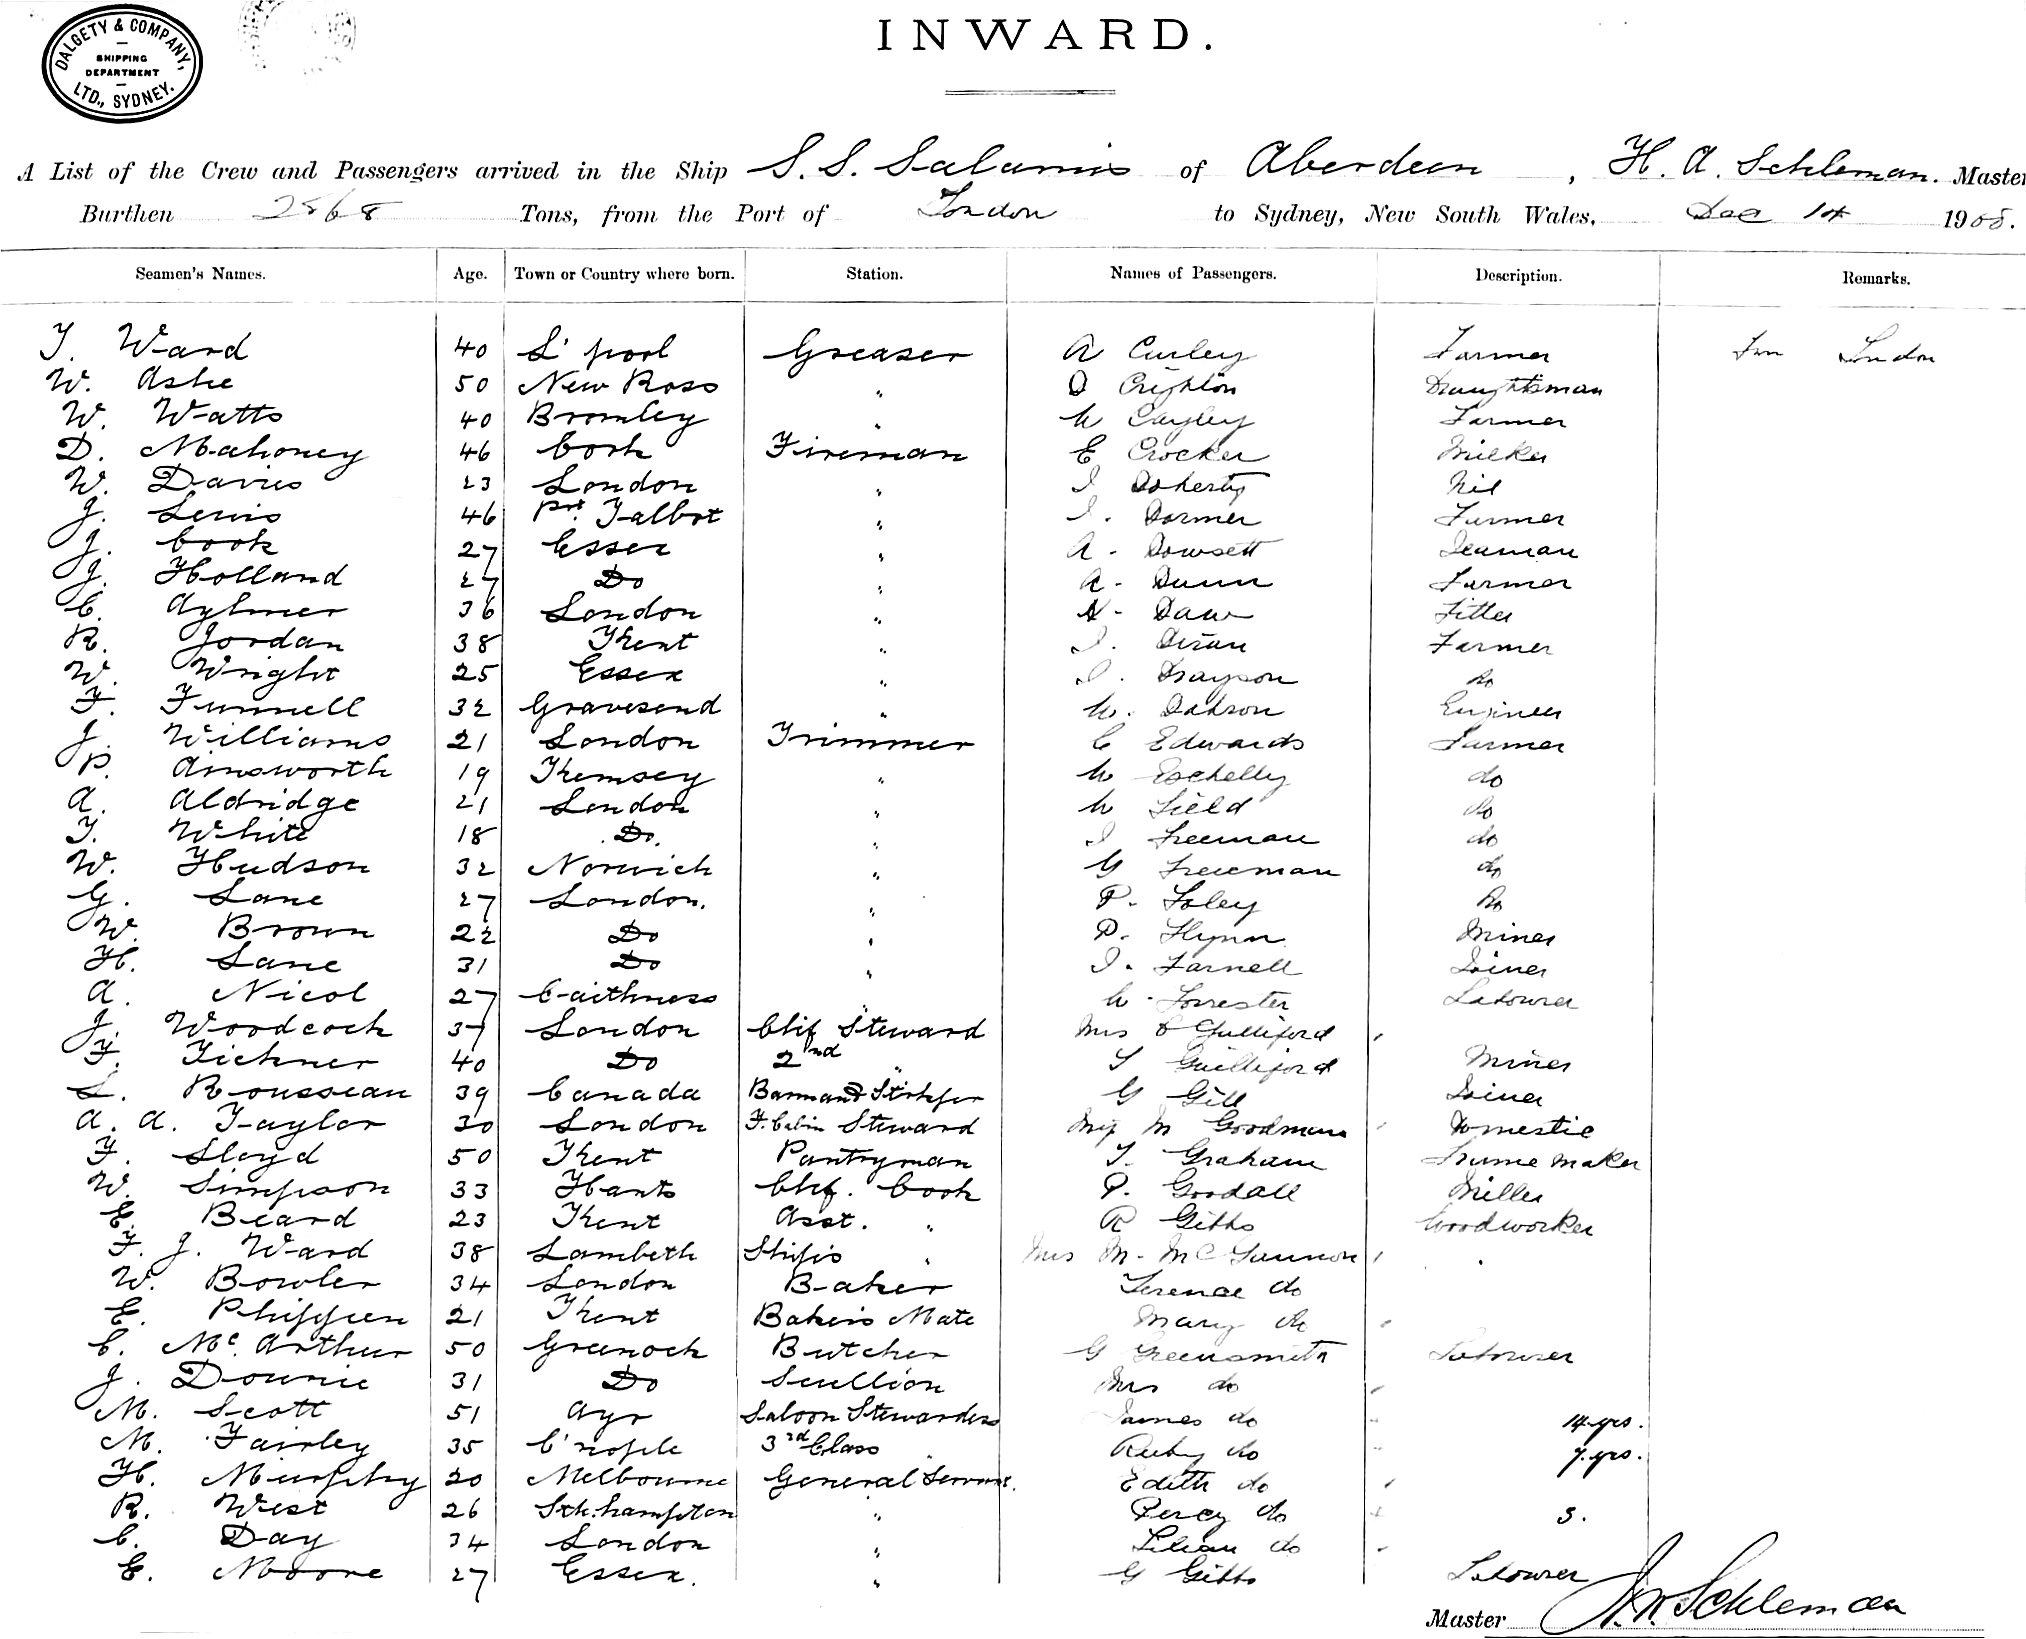 DALGETY & COMPANY,
SHIPPING
DEPARTMENT
LTD., SYDNEY.
INWARD.
A List of the Crew and Passengers arrived in the Ship S. S. Salamis of Aberdeen, H. A. Schleman. Master
Burthen Tons, from the Port of London to Sydney, New South Wales, Dec 14 1908.
Seamen's Names. Age. Town or Country where born. Station. Names of Passengers. Description. Remarks.
T. Ward 40 L'pool Greaser A Curley Farmer London
W. Ashe 50 New Ross " D Crighton Draughtsman
W. Watts 40 Bromley " W Cayley Farmer
D. Mahoney 46 Cork Fireman E Crocker Milker
W. Davies 23 London " J Doherty Nil
J. Lewis 46 Prt Talbot " J. Dormer Farmer
J. Cook 27 Essex " A. Dowsett Seaman
J. Holland 27 Do " A. Dunn Farmer
C. Aylmer 36 London " Daw Fitter
R. Jordan 38 Kent " J. Farmer
W. Wright 25 Essex " J. Grayson Do
F. Funnell 32 Gravesend " W. Dobson Engineer
J. Williams 21 London Trimmer C Edwards Farmer
P. Ainsworth 19 Kemsey " W Eschelly do
A. Aldridge 21 London " W Field Do
T. White 18 Do. " J Freeman do
W. Hudson 32 Norwich " G Freeman do
G. Lane 27 London. " P. Foley Do
W. Brown 22 Do " P. Flynn Miner
H. Lane 31 Do " J. Farnell Joiner
A. Nicol 27 Caithness W. Forrester Labourer
J. Woodcock 37 London Chif Steward Mrs E Gulliford "
F. Tickner 40 Do 2nd " T Gulliford Miner
L. Rousseau 39 Canada Barman & Strkpr G Gill Joiner
A. A. Taylor 30 London F. Cabin Steward M Goodman Domestic
F. Lloyd 50 Kent Pantryman T. Graham Frame maker
W. Simpson 33 Hants Chf. Cook P. Goodall Miller
E. Beard 23 Kent Asst. " R Gibbs Woodworker
F. J. Ward 38 Lambeth Ship's " Mrs M. McGannon
W. Bowler 34 London Baker Terence do
E. Phippen 21 Kent Bakers Mate Mary do
C. McArthur 50 Greenock Butcher G Greensmith Labourer
J. Downie 31 Do Scullion Mrs do
M. Scott 51 Ayr Saloon Stewardess James do 14 yrs.
M. Fairley 35 C'nople 3rd Class " Ruby do 7 yrs.
H. Murphy 20 Melbourne General Servant. Edith do
R. West 26 Sth.hampton " Percy do 3.
C. Day 34 London " Lilian do
E. Moore 27 Essex. " G Gibbs Labourer
Master H. A. Schleman